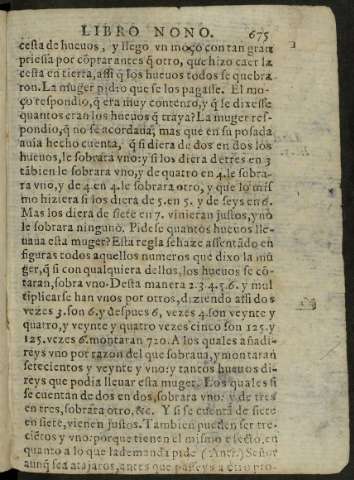 LIBRO NONO. 675
cesta de hueuos, y llego vn moço con tan gran
priessa por cōprar antes q̃ otro, que hizo caer la
cesta en tierra, assi q̃ los hueuos todos se quebra
ron. La muger pidio que se los pagasse. El mo-
ço respondio, q̃ era muy contento, y q̃ le dixesse
quantos eran los hueuos q̃ traya? La muger res-
pondio, q̃ no se acordaua, mas que en su posada
auia hecho cuenta, q̃ si diera de dos en dos los
hueuos, le sobrara vno: y si los diera d̃ tres en 3
tābien le sobrara vno, y de quatro en 4. le sobra-
ra vno, y de 4. en 4. le sobrara otro, y que lo mis
mo hiziera si los diera de 5. en 5. y de seys en 6.
Mas los diera de siete en 7. vinieran justos, y no
le sobrara ninguno. Pidese quantos hueuos lle-
uaua esta muger? Esta regla se haze assentādo en
figuras todos aquellos numeros que dixo la mu
ger, q̃ si con qualquiera dellos, los hueuos se cō-
taran, sobra vno. Desta manera 2. 3. 4. 5. 6. y mul
tiplicarse han vnos por otros, diziendo assi dos
vezes 3. son 6, y despues 6, vezes 4. son veynte y
quatro, y veynte y quatro vezes cinco son 125. y
125. vezes 6. montaran 720. A los quales añadi-
reys vno por razon del que sobraua, y montaran
setecientos y veynte y vno: y tantos hueuos di-
reys que podia lleuar esta muger. Los quales si
se cuentan de dos en dos, sobrara vno: y de tres
en tres, sobrara otro, &c. Y si se cuentā de siete
en siete, vienen justos. Tambien pueden ser tre-
ciētos y vno: porque tienen el mismo efecto, en
quanto a lo que la demanda pide (Antr.) Señor
aunq̃ sea atajaros, antes que passeys a otro pro-